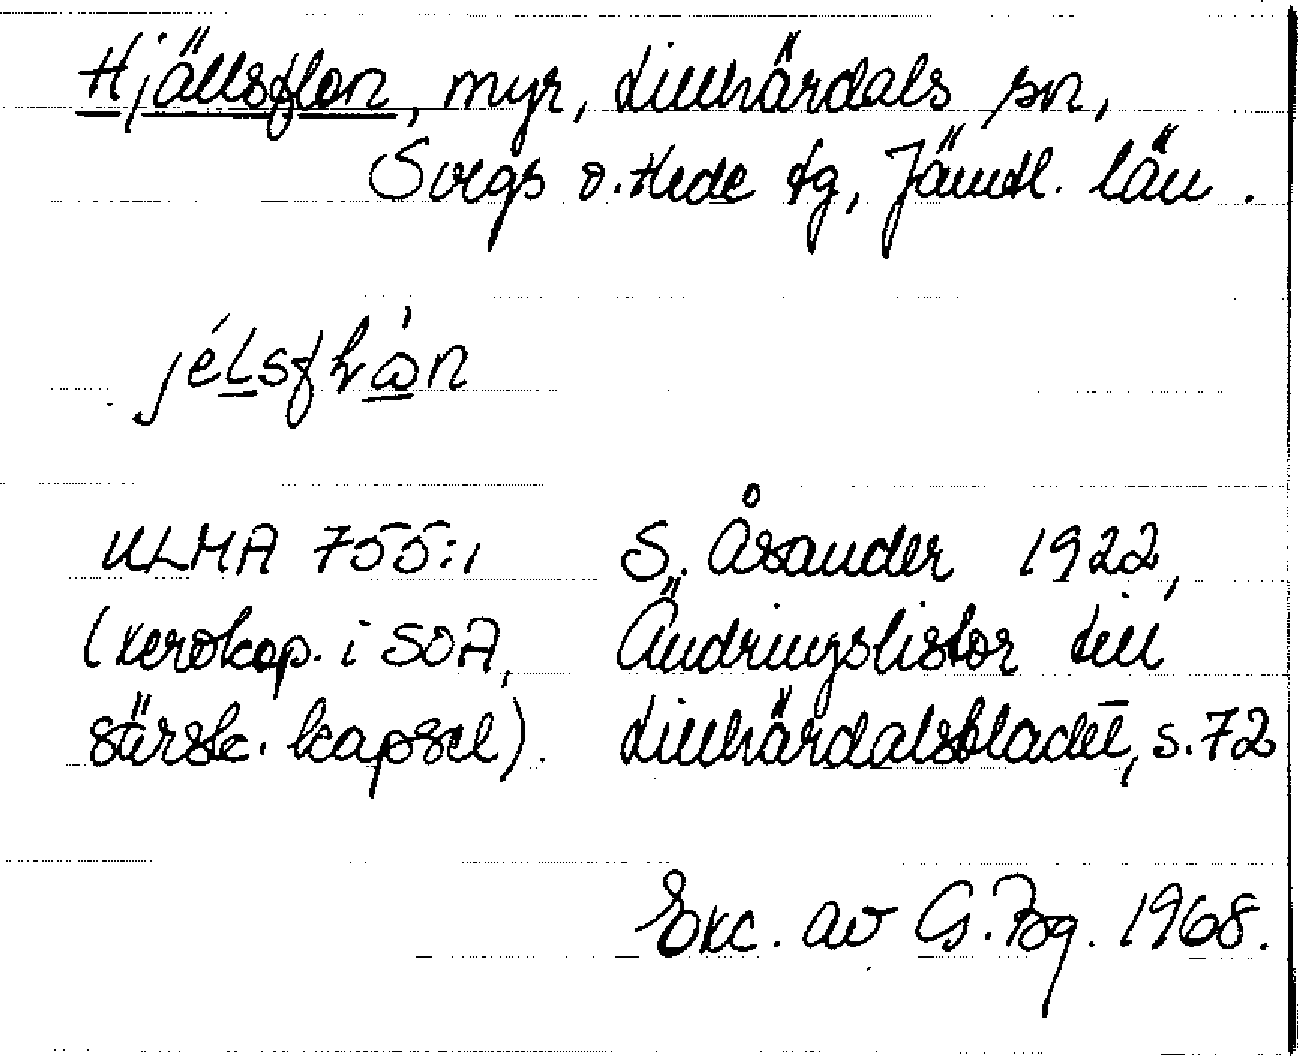 Hjällsflon, myr, Lillhärdals sn,
Svegs o. Hede tg, Jämtl. län.
ULMA 755:1 S. Åsander 1922,
(xerokop. i SOA, Ändringslistor till
särsk. kapsel). Lillhärdalsbladet, s. 72
Exc. av G. Bg. 1968.